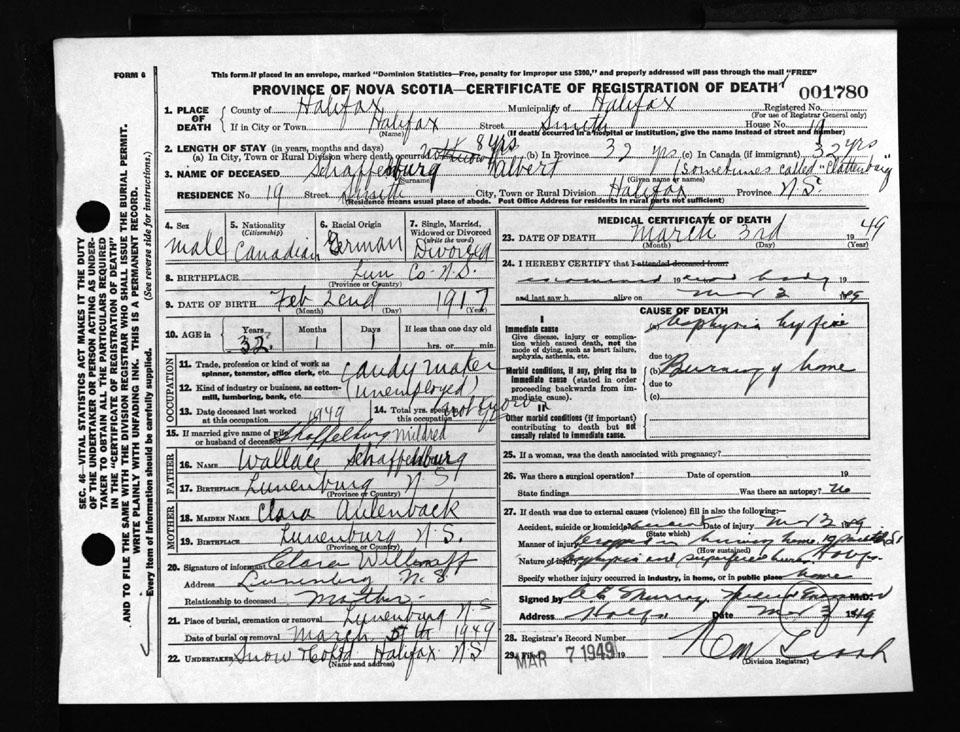 FORM 6
This form if placed in an envelope, marked "Dominion Statistics—Free, penalty for improper use $300," and properly addressed will pass through the mail "FREE"
PROVINCE OF NOVA SCOTIA—CERTIFICATE OF REGISTRATION OF DEATH 001780
1. PLACE OF DEATH County of Halifax Municipality of Halifax Registered No.
(For use of Registrar General only)
If in City or Town Halifax Street Smith House No. 19
(Name) (If death occurred in a hospital or institution, give the name instead of street and number)
2. LENGTH OF STAY (in years, months and days)
(a) In City, Town or Rural Division where death occurred 8 yrs (b) In Province 32 yrs (c) In Canada (if immigrant) 32 yrs
3. NAME OF DECEASED Schaffenburg Walbert (Sometimes called "Clattenburg")
(Surname) (Given name or names)
RESIDENCE No. 19 Smith City, Town or Rural Division Halifax Province N.S.
(Residence means usual place of abode. Post Office Address for residents in rural parts not sufficient)
4. Sex Male
5. Nationality (Citizenship) Canadian
6. Racial Origin German
7. Single, Married, Widowed or Divorced (write the word) Divorced
8. BIRTHPLACE Lun Co. N.S.
(Province or Country)
9. DATE OF BIRTH Feb 2end 1917
(Month) (Day) (Year)
10. AGE in Years 32 Months 1 Days 1 If less than one day old hrs. or min.
OCCUPATION
11. Trade, profession or kind of work as spinner, teamster, office clerk, etc. Candy maker
12. Kind of industry or business, as cotton-mill, lumbering, bank, etc. (unemployed)
13. Date deceased last worked at this occupation 1949
14. Total yrs. spent in this occupation not known
15. If married give name of wife or husband of deceased Shaffelburg Mildred
FATHER
16. NAME Wallace Schaffenburg
17. BIRTHPLACE Lunenburg N S
(Province or Country)
MOTHER
18. MAIDEN NAME Clara Aulenback
19. BIRTHPLACE Lunenburg N.S.
(Province or Country)
20. Signature of informant Clara
Address Lunenburg N.S.
Relationship to deceased Mother
21. Place of burial, cremation or removal Lunenburg N.S
Date of burial or removal March 5th 1949
22. UNDERTAKER Snow & Co Ltd Halifax N.S
(Name and address)
MEDICAL CERTIFICATE OF DEATH
23. DATE OF DEATH March 3rd 1949
(Month) (Day) (Year)
24. I HEREBY CERTIFY that I attended deceased from:
examined 19 body 19
and last saw h alive on Mar 3 1949
CAUSE OF DEATH
I
Immediate cause
Give disease, injury or complication which caused death, not the mode of dying, such as heart failure, asphyxia, asthenia, etc.
(a) Asphyxia by fire
due to
Morbid conditions, if any, giving rise to immediate cause (stated in order proceeding backwards from immediate cause).
(b) Burning of home
due to
(c)
II
Other morbid conditions (if important) contributing to death but not causally related to immediate cause.
25. If a woman, was the death associated with pregnancy?
26. Was there a surgical operation? Date of operation 19
State findings Was there an autopsy? No
27. If death was due to external causes (violence) fill in also the following:—
Accident, suicide or homicide Accident Date of injury Mar 3 1949
(State which)
Manner of injury Trapped in burning home, 19 Smith St
(How sustained)
Nature of injury Asphyxia and superficial burns
Specify whether injury occurred in industry, in home, or in public place home
Signed by Murray M.D.
Address Halifax Date Mar 3 1949
28. Registrar's Record Number
29. Filed MAR 7 1949 19
(Division Registrar)
SEC. 46—VITAL STATISTICS ACT MAKES IT THE DUTY OF THE UNDERTAKER OR PERSON ACTING AS UNDERTAKER TO OBTAIN ALL THE PARTICULARS REQUIRED IN THE "CERTIFICATE OF REGISTRATION OF DEATH" AND TO FILE THE SAME WITH THE DIVISION REGISTRAR WHO SHALL ISSUE THE BURIAL PERMIT.
WRITE PLAINLY WITH UNFADING INK. THIS IS A PERMANENT RECORD.
Every item of information should be carefully supplied. (See reverse side for instructions.)